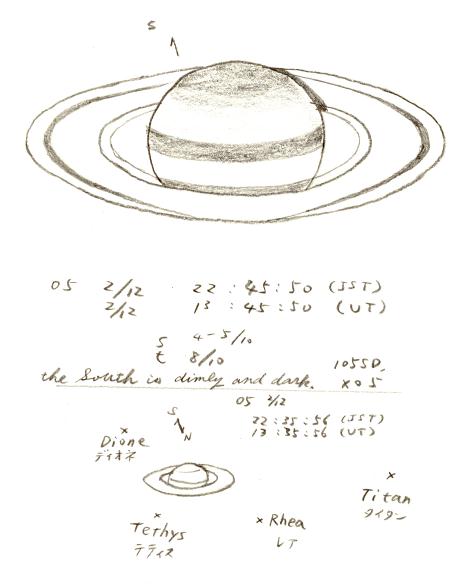 S
05 2/12 22:45:50 (JST)
2/12 13:45:50 (UT)
S 4-5/10
t 8/10
the South is dimly and dark.
05 2/12
S
N
22:35:56 (JST)
13:35:56 (UT)
Dione
ディオネ
Titan
タイタン
Tethys
テティス
Rhea
レア